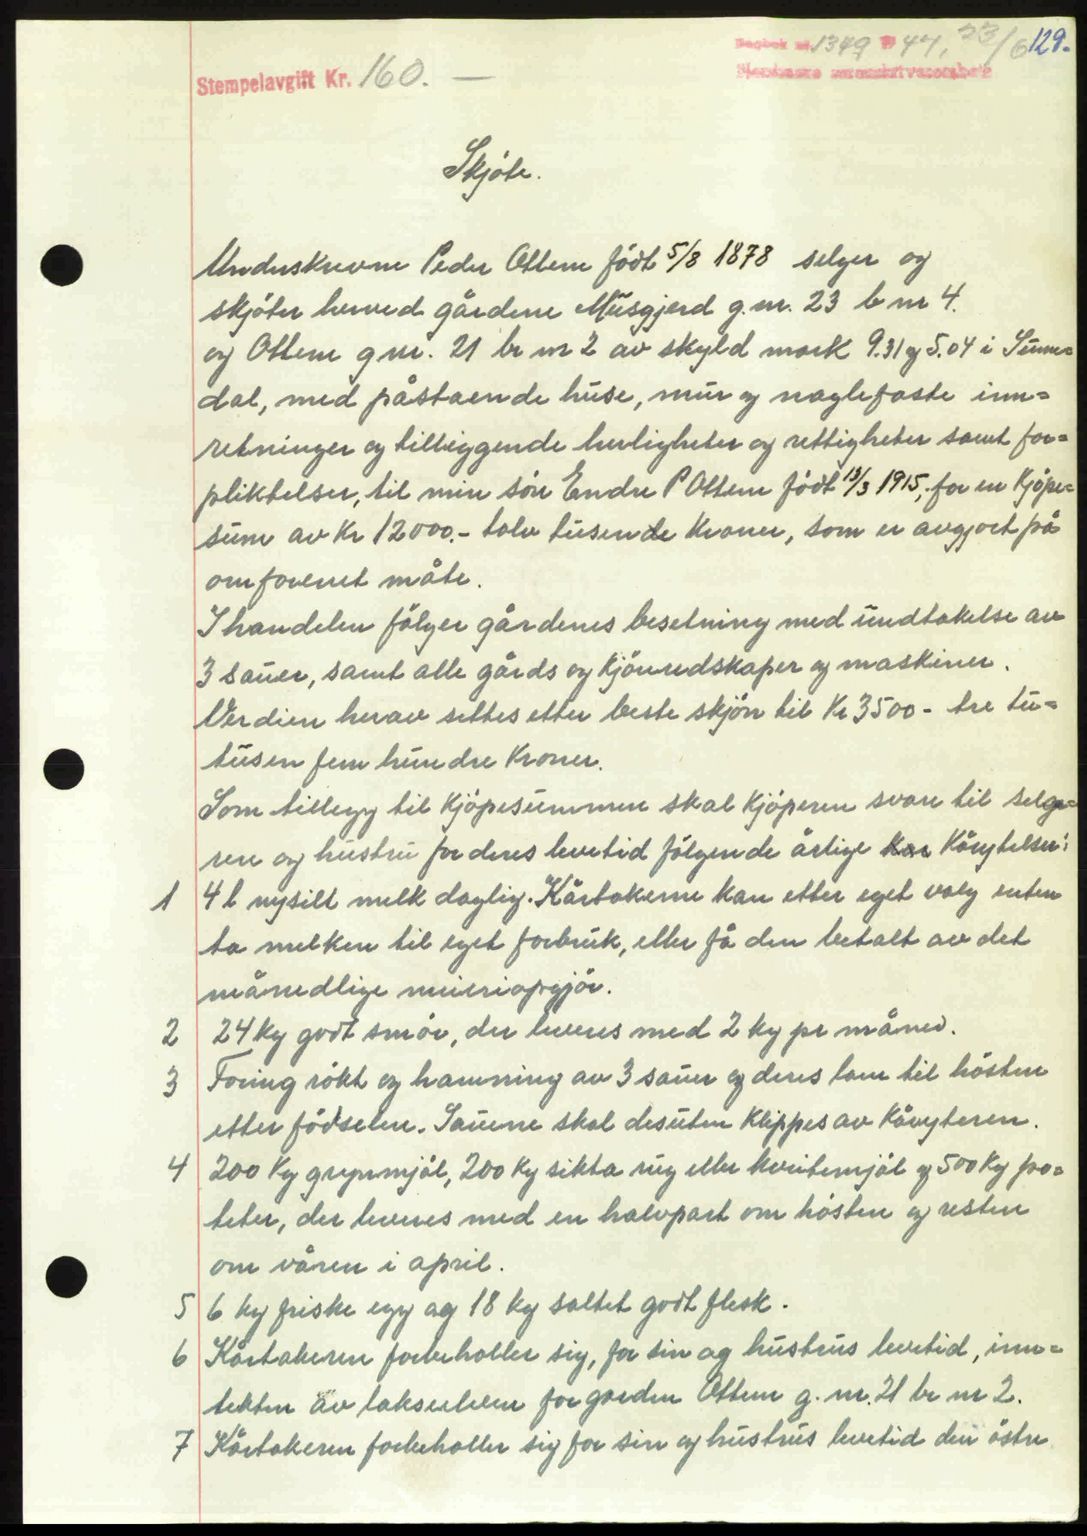 Dagbok nr. 1349 19 47, 23/6 129.
Stempelavgift Kr. 160. —
Skjöte.
Underskrevne Peder Ottem födt 5/8 1878 selger og
skjöter herved gårdene Musgjerd g.nr. 23 b nr 4.
og Ottem g nr. 21 br nr 2 av skyld mark 9.31 og 5.04 i Sunn=
dal, med påstaende huse, mur og naglefaste inn=
retninger og tilliggende herligheter og rettigheter samt for=
pliktelser, til min sön Endre P Ottem födt 13/3 1915, for en Kjöpe=
sum av Kr 12000.- tolv tusende Kroner, som er avgjort på
omforenet måte.
I handelen fölger gårdenes besetning med undtakelse av
3 sauer, samt alle gårds og Kjöreredskaper og maskiner.
Verdien herav settes etter beste skjön til Kr 3500 - tre tu=
tusen fem hundre Kroner.
Som tillegg til Kjöpesummen skal Kjöperen svare til selge=
ren og hustru for deres levetid fölgende årlige Kårytelser:
1 4 l nysilt melk daglig. Kårtakerne kan etter eget valg enten
ta melken til eget forbruk, eller få den betalt av det
månedlige meieriopgjör.
2 24 Kg godt smör, der leveres med 2 kg pr måned.
3 Foring rökt og hamning av 3 sauer og deres lam til hösten
etter födselen. Sauene skal desuten Klippes av Kåryteren.
4 200 Kg grynmjöl, 200 Kg sikta rug eller hveitemjöl og 500 Kg po=
teter, der leveres med en halvpart om hösten og resten
om våren i april.
5 6 kg friske egg og 18 kg saltet godt flesk.
6 Kårtakeren forbeholler sig, for sin og hustrus levetid, inn=
tekten av lakseelven for garden Ottem g. nr. 21 br nr 2.
7 Kårtakeren forbeholler sig for sin og hustrus levetid den östre